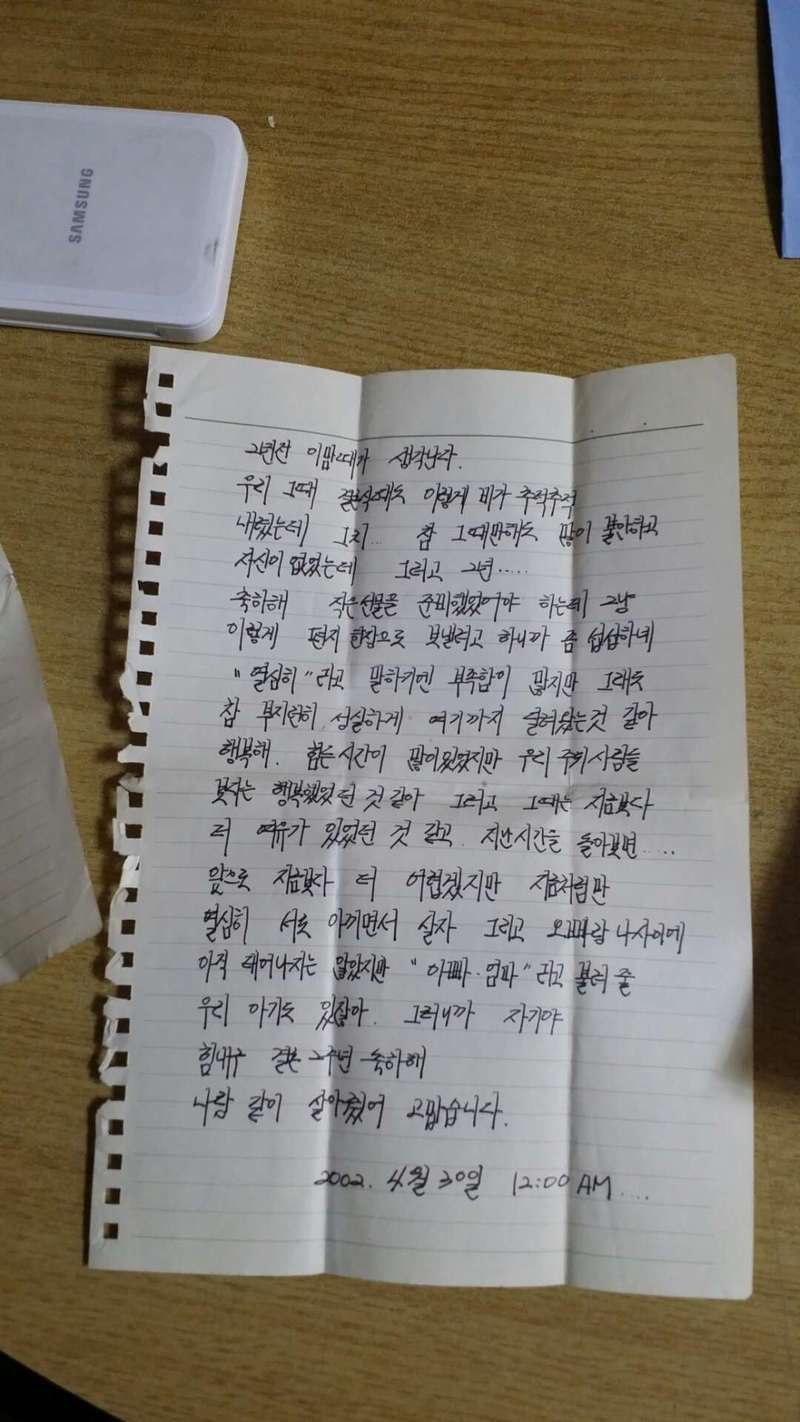 SAMSUNG
2년전 이맘때가 생각난다.
우리 그때 결혼식때도 이렇게 비가 추적추적
내렸는데 그치... 참 그때만해도 많이 불안하고
자신이 없었는데 그리고 2년.....
축하해 작은선물을 준비했었어야 하는데 그냥
이렇게 편지 한장으로 보낼려고 하니까 좀 섭섭하네
"열심히"라고 말하기엔 부족함이 많지만 그래도
참 부지런히 성실하게 여기까지 달려왔는것 같아
행복해. 힘든시간이 많이있었지만 우리 주위사람들
보다는 행복했었던 것 같아 그리고 그때는 지금보다
더 여유가 있었던 것 같고. 지난시간을 돌아보면.....
앞으로 지금보다 더 어렵겠지만 지금처럼만
열심히 서로 아끼면서 살자 그리고 오빠랑 나사이에
아직 태어나지는 않았지만 "아빠·엄마"라고 불러 줄
우리 아기도 있잖아. 그러니까 자기야
힘내구 결혼 2주년 축하해
나랑 같이 살아줬어 고맙습니다.
2002. 4월 30일 12:00 AM....